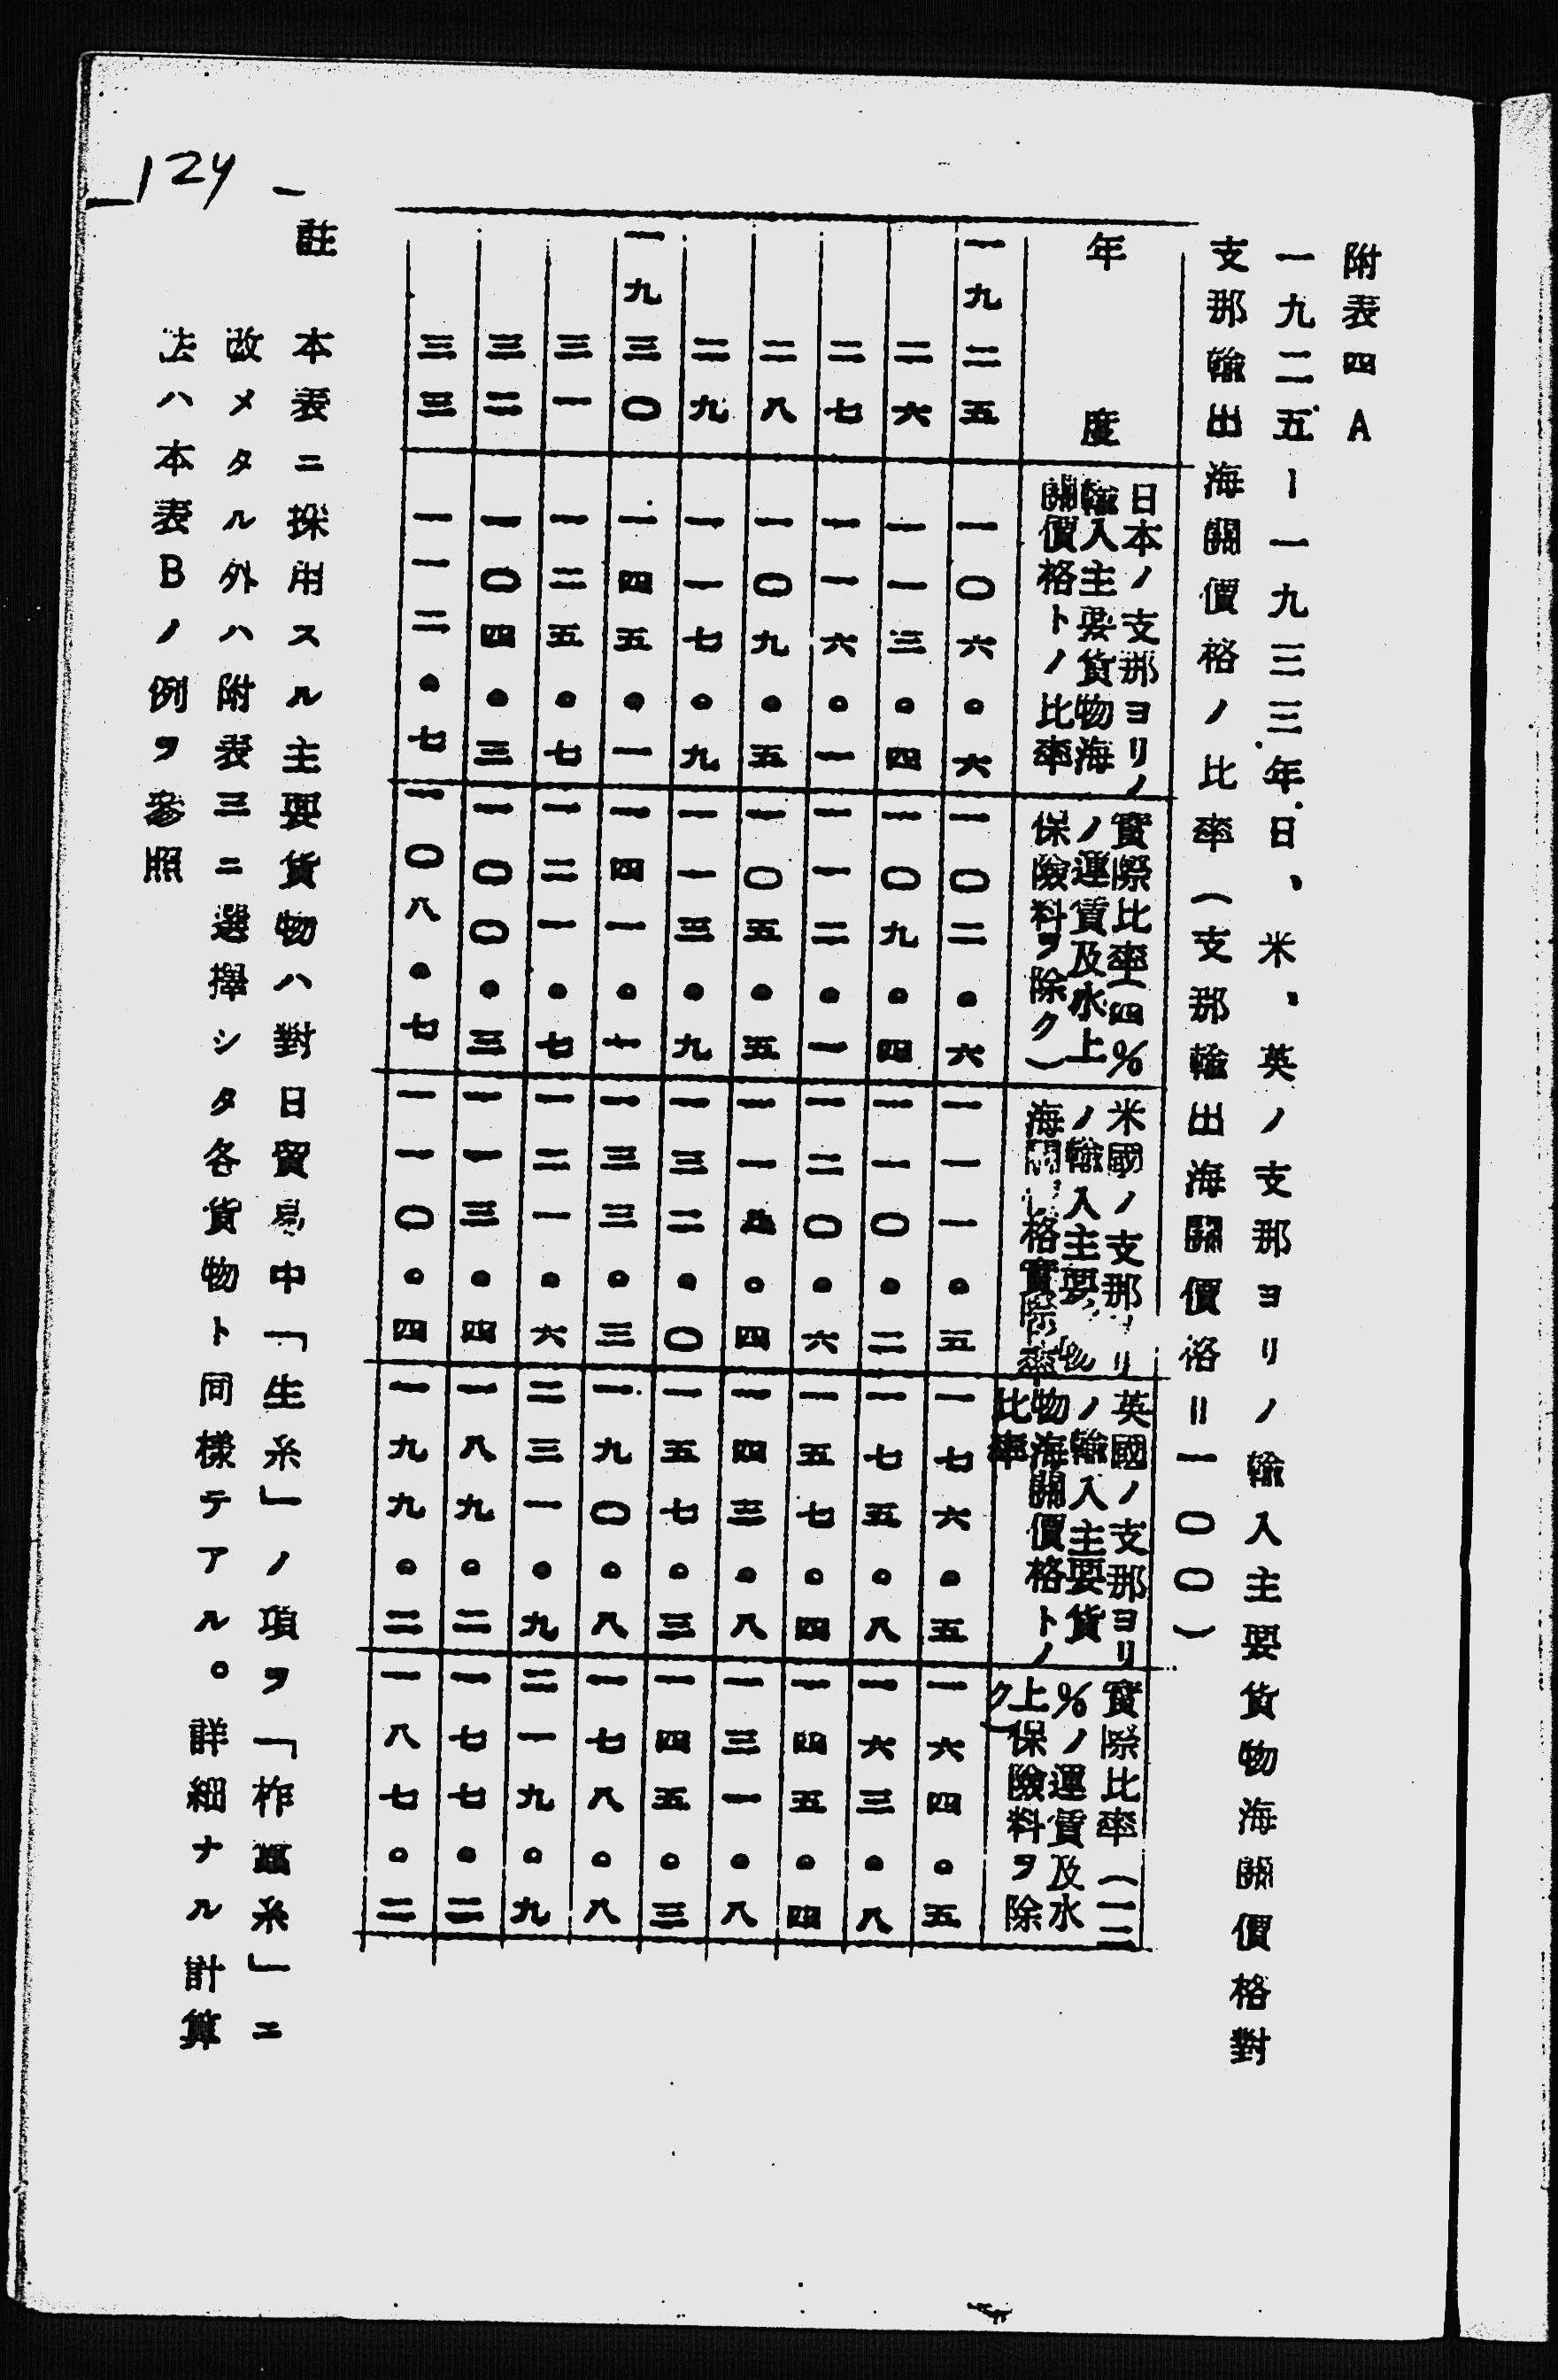 124
附表四A
一九二五ー一九三三年日、米、英ノ支那ヨリノ輸入主要貨物海關價格對
支那輸出海關價格ノ比率(支那輸出海關價格=一〇〇)
年度
日本ノ支那ヨリノ
輸入主要貨物海
關價格トノ比率
實際比率(四%
ノ運賃及水上
保險料ヲ除ク)
米國ノ支那リ
ノ輸入主要物
海關格實際率
英國ノ支那ヨリ
ノ輸入主要貨
物海關價格トノ
比率
實際比率(一二
%ノ運賃及水
上保險料ヲ除
ク)
一九二五 一〇六。六 一〇二。六 一一一。五 一七六。五 一六四。五
二六 一一三。四 一〇九。四 一一〇。二 一七五。八 一六三。八
二七 一一六。一 一一二。一 一二〇。六 一五七。四 一四五。四
二八 一〇九。五 一〇五。五 一一。四 一四三。八 一三一。八
二九 一一七。九 一一三。九 一三二。〇 一五七。三 一四五。三
一九三〇 一四五。一 一四一。一 一三三。三 一九〇。八 一七八。八
三一 一二五。七 一二一。七 一二一。六 二三一。九 二一九。九
三二 一〇四。三 一〇〇。三 一一三。四 一八九。二 一七七。二
三三 一一二。七 一〇八。七 一一〇。四 一九九。二 一八七。二
註 本表ニ採用スル主要貨物ハ對日貿易中「生糸」ノ項ヲ「柞蠶糸」ニ
改メタル外ハ附表三ニ選擇シタ各貨物ト同樣テアル。詳細ナル計算
法ハ本表Bノ例ヲ參照